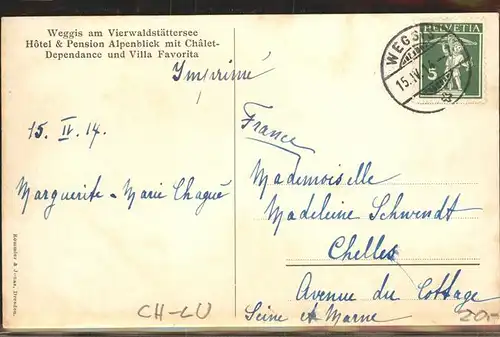 Weggis am Vierwaldstättersee
Hôtel & Pension Alpenblick mit Châlet-
Dependance und Villa Favorita
Imprimé
15. IV. 14.
Marguerite-Marie Chagué
HELVETIA
5
WEGGIS
15.IV.14
France
Mademoiselle
Madeleine Schwendt
Chelles
Avenue du Cottage
Seine et Marne
CH-LU
20,-